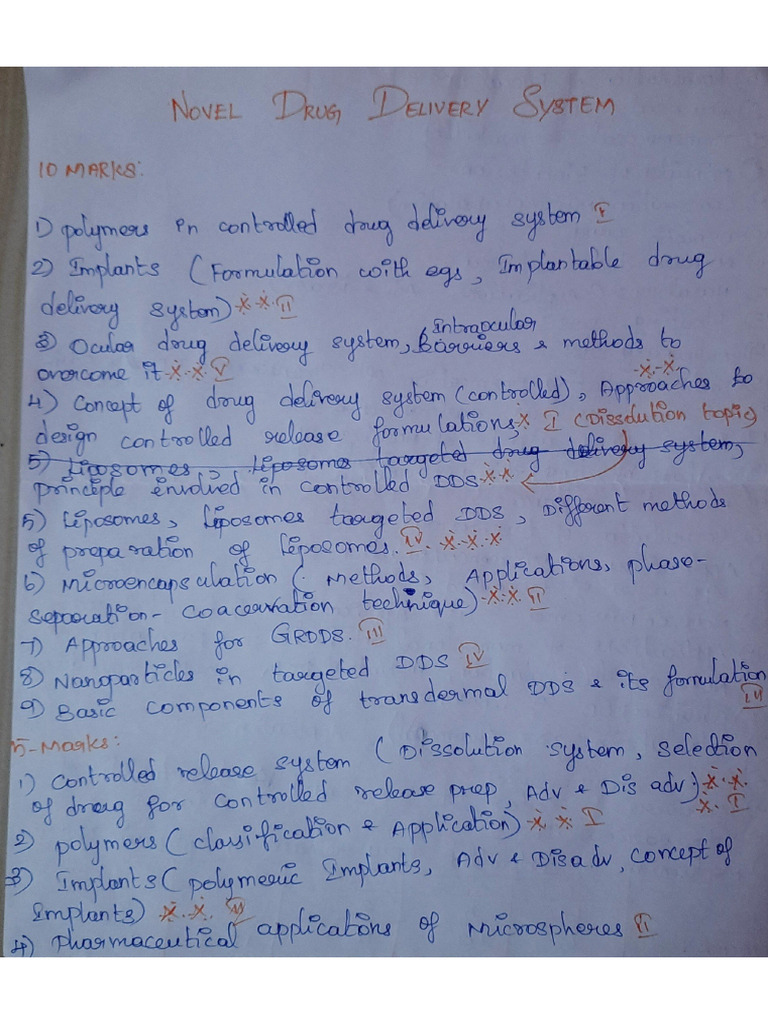 NOVEL DRUG DELIVERY SYSTEM
10 MARKS:
1) polymers in controlled drug delivery system I
2) Implants (Formulation with egs, Implantable drug
delivery system) ** II
Intraocular
3) Ocular drug delivery system, barriers & methods to
overcome it ** V
4) Concept of drug delivery system (controlled), Approaches to **
design controlled release formulations,* I (Dissolution topic)
5) Liposomes, Liposomes targeted drug delivery system,
principle involved in controlled DDS **
5) Liposomes, Liposomes targeted DDS, Different methods
of preparation of Liposomes. IV ***
6) Microencapsulation (Methods, Applications, phase-
separation- coacervation technique) ** II
7) Approaches for GRDDS. III
8) Nanoparticles in targeted DDS IV
9) Basic components of transdermal DDS & its formulation
5-Marks:
1) Controlled release system (Dissolution system, selection
of drug for controlled release prep, Adv & Dis adv) **
* I
2) polymers (classification & Application) ** I
3) Implants (polymeric Implants, Adv & Disadv, concept of
Implants) **
4) pharmaceutical applications of Microspheres II